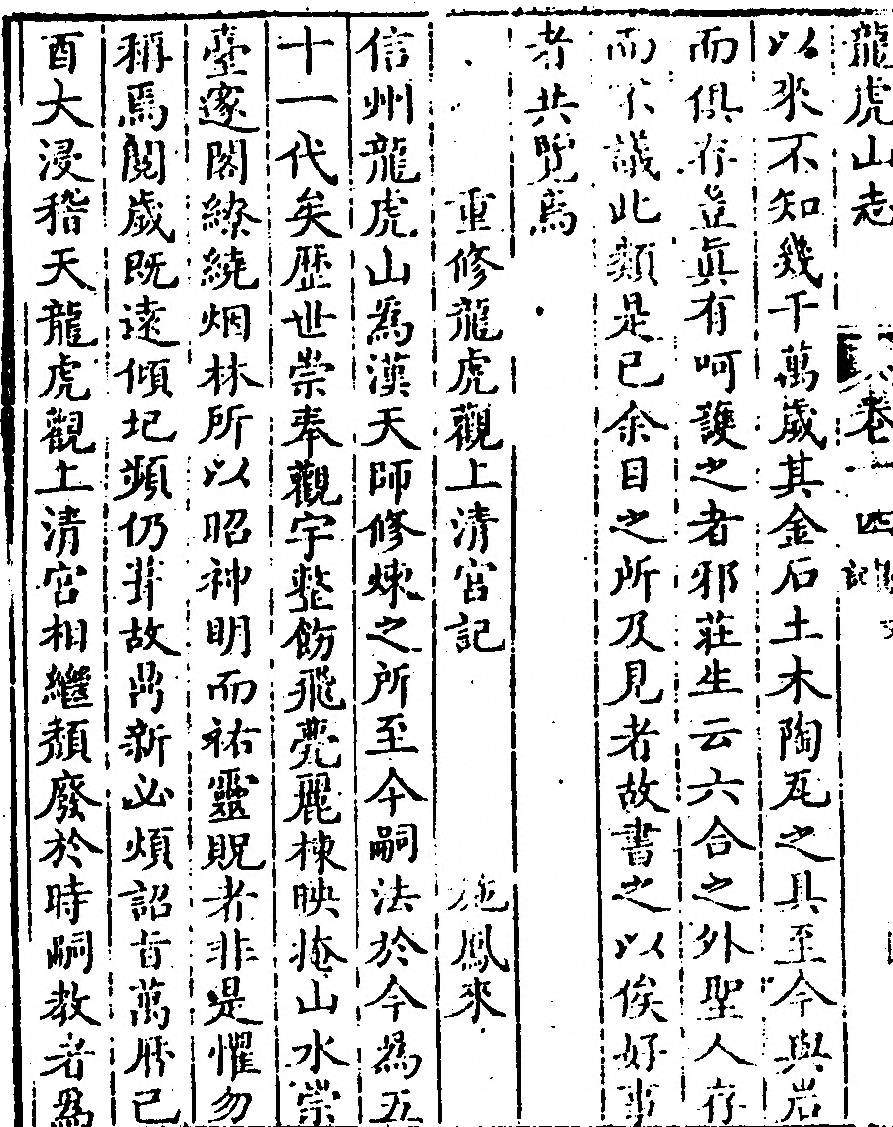 龍虎山志 卷十一 四
以來不知幾千萬歲其金石土木陶瓦之具至今與岩
而俱存豈眞有呵護之者邪莊生云六合之外聖人存
而不議此類是已余目之所及見者故書之以俟好事
者共覽焉
重修龍虎觀上清宮記 施鳳來
信州龍虎山爲漢天師修煉之所至今嗣法於今爲五
十一代矣歷世崇奉觀宇整飭飛甍麗棟映掩山水崇
臺邃閣繚繞烟林所以昭神明而祐靈貺者非是懼勿
稱焉閱歲既遠傾圮頻仍葺故鼎新必煩詔旨萬曆己
酉大浸稽天龍虎觀上清宮相繼頹廢於時嗣教者爲